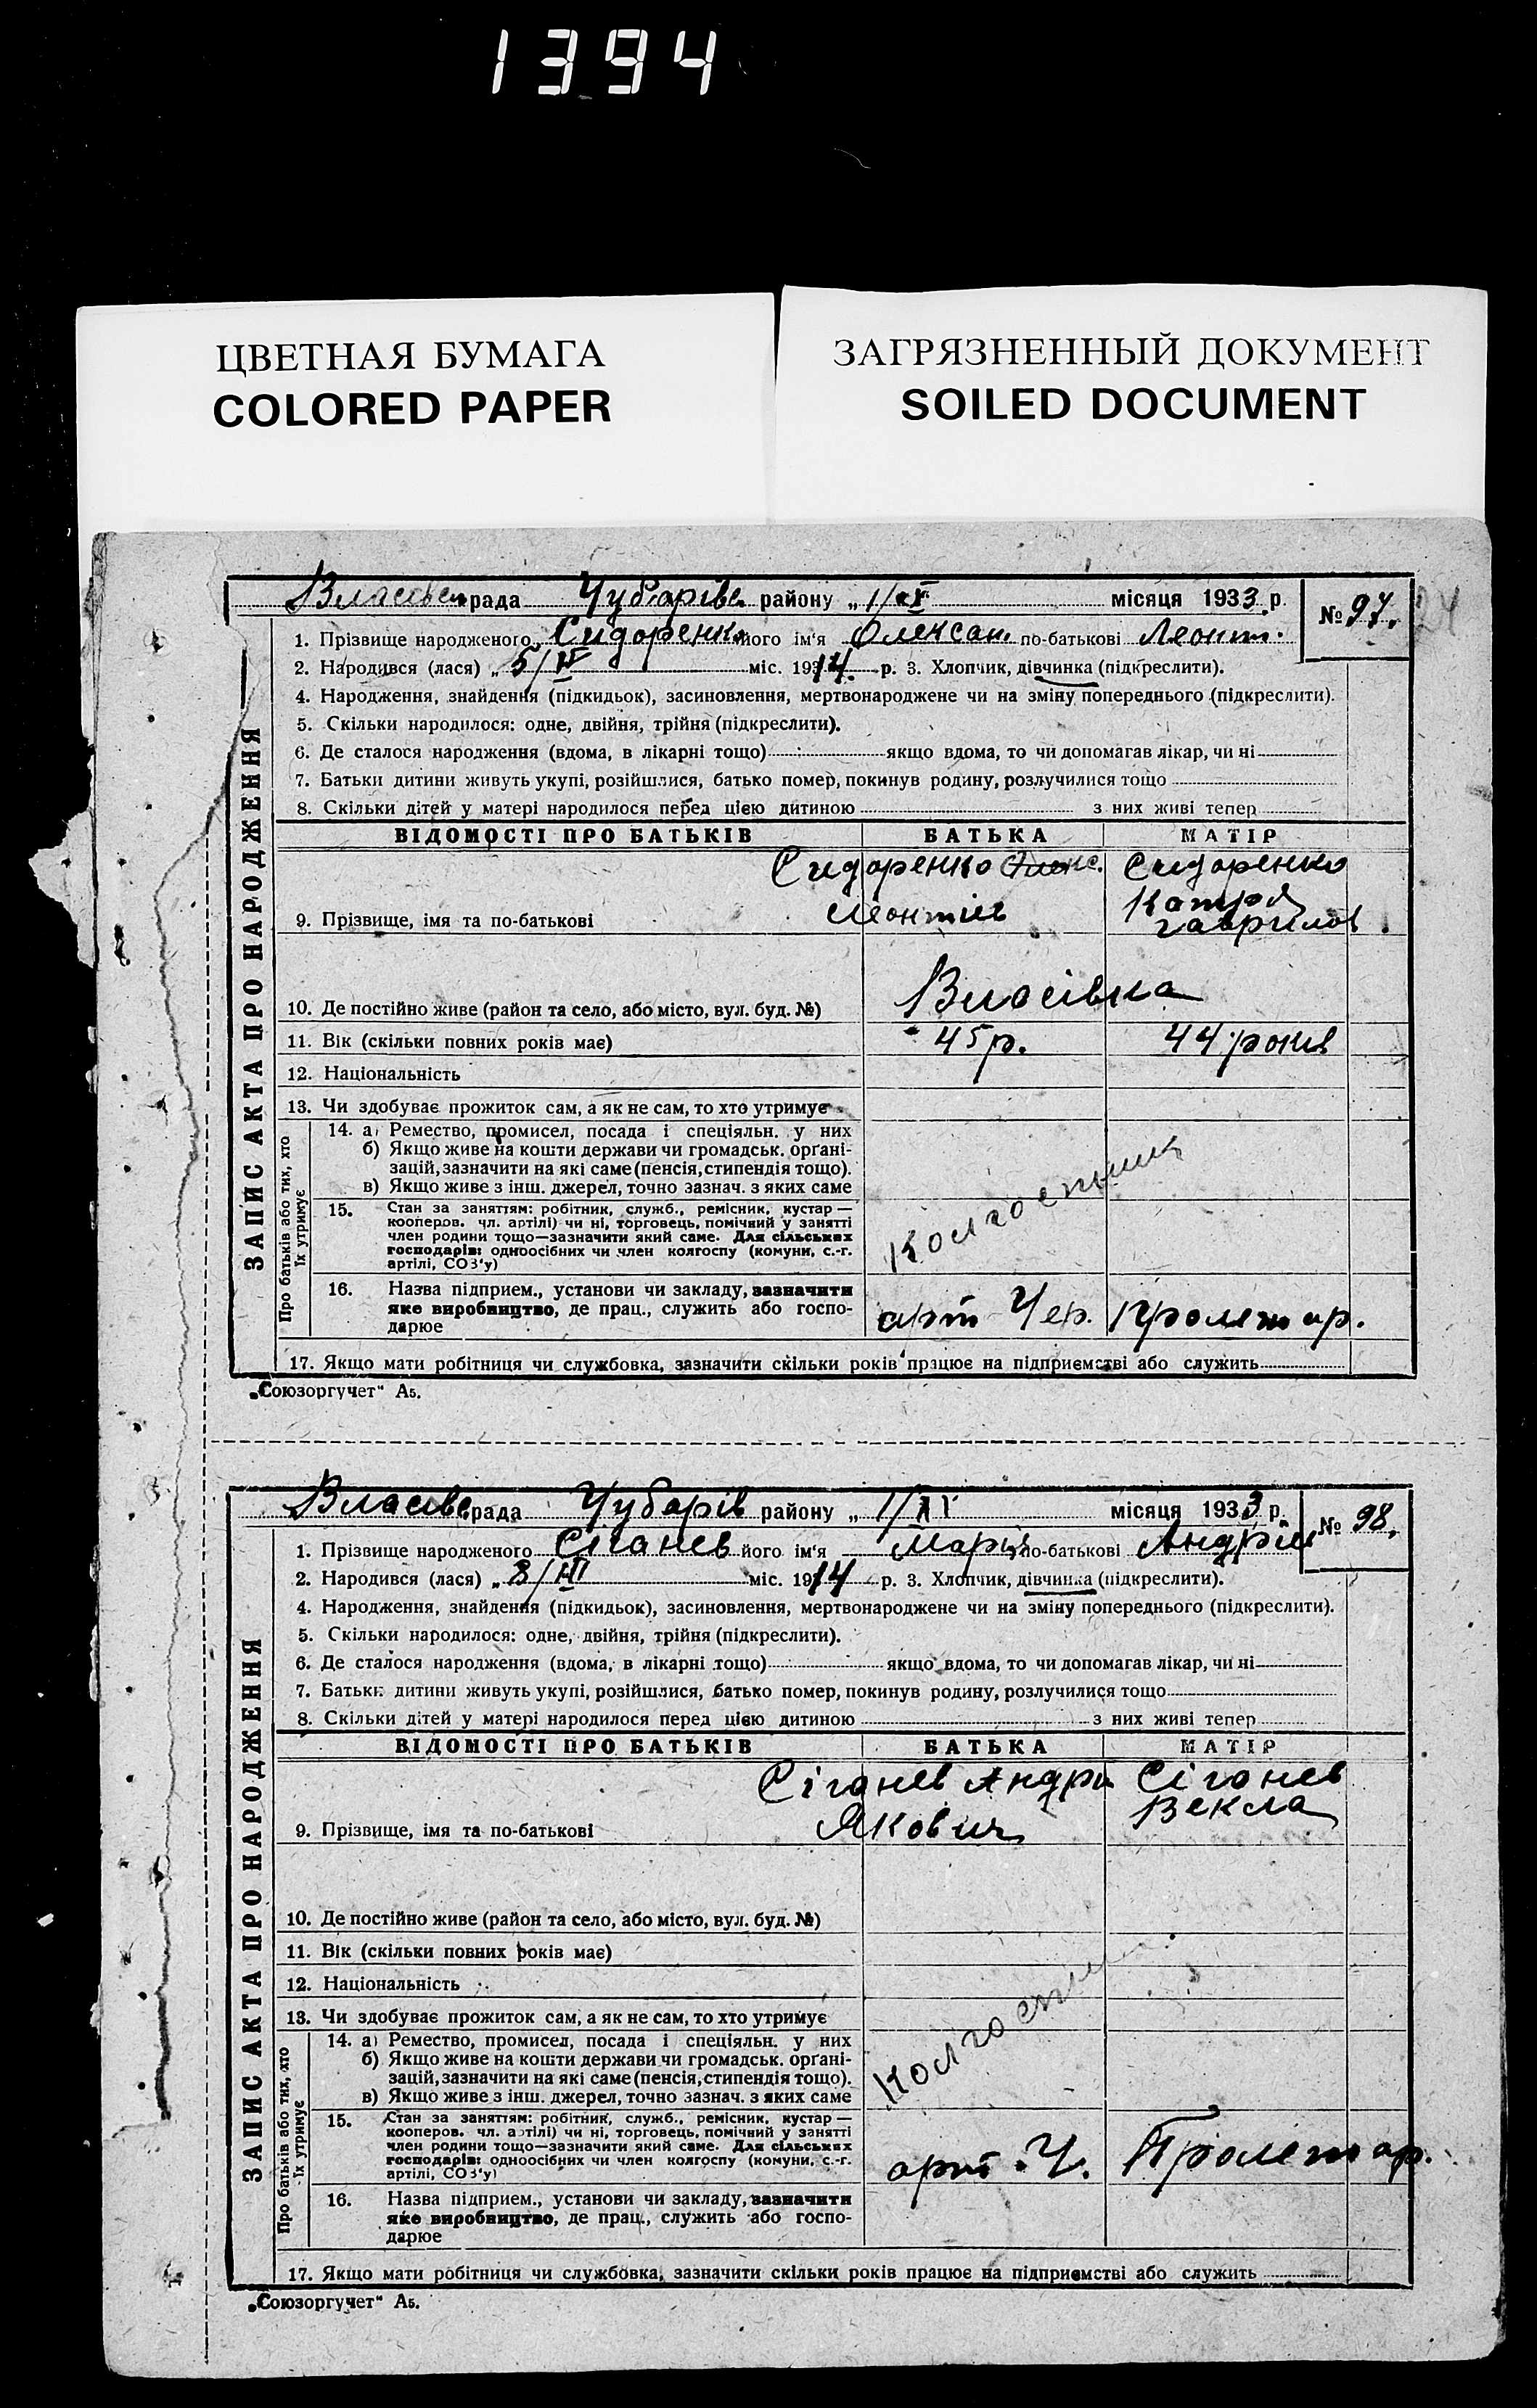 1394
ЦВЕТНАЯ БУМАГА
COLORED PAPER
ЗАГРЯЗНЕННЫЙ ДОКУМЕНТ
SOILED DOCUMENT
Власівс рада Чубарівс району „ 1/XI місяця 1933 р. № 97.
1. Прізвище народженого Сидоренко його ім'я Олексан. по-батькові Леонт.
2. Народився (лася) „ 5/ міс. 1914. р. 3. Хлопчик, дівчинка (підкреслити).
4. Народження, знайдення (підкидьок), засиновлення, мертвонароджене чи на зміну попереднього (підкреслити).
5. Скільки народилося: одне, двійня, трійня (підкреслити).
6. Де сталося народження (вдома, в лікарні тощо) якщо вдома, то чи допомагав лікар, чи ні
7. Батьки дитини живуть укупі, розійшлися, батько помер, покинув родину, розлучилися тощо
8. Скільки дітей у матері народилося перед цією дитиною з них живі тепер
ЗАПИС АКТА ПРО НАРОДЖЕННЯ
ВІДОМОСТІ ПРО БАТЬКІВ БАТЬКА МАТІР
9. Прізвище, імя та по-батькові
Сидоренко
Леонтій
Сидоренко
Катря
Гаврилов
10. Де постійно живе (район та село, або місто, вул. буд. №) Власівка
11. Вік (скільки повних років має) 45 р. 44 років
12. Національність
13. Чи здобуває прожиток сам, а як не сам, то хто утримує
Про батьків або тих, хто
їх утримує
14. а) Ремество, промисел, посада і спеціяльн. у них
б) Якщо живе на кошти держави чи громадськ. орґані-
зацій, зазначити на які саме (пенсія, стипендія тощо).
в) Якщо живе з інш. джерел, точно зазнач. з яких саме
15. Стан за заняттям: робітник, служб., ремісник, кустар —
кооперов. чл. артілі) чи ні, торговець, помічний у занятті
член родини тощо—зазначити який саме. Для сільських
господарів: одноосібних чи член колгоспу (комуни, с.-г.
артілі, СОЗ'у)
Колгоспник
16. Назва підприєм., установи чи закладу, зазначити
яке виробництво, де прац., служить або госпо-
дарює
арт Чер. Пролетар.
17. Якщо мати робітниця чи службовка, зазначити скільки років працює на підприємстві або служить
„Союзоргучет" А5.
Власівс рада Чубарів району „ 1/XI місяця 1933 р. № 98.
1. Прізвище народженого Сіганев його ім'я Марія по-батькові Андрій
2. Народився (лася) „ 8/III міс. 1914 р. 3. Хлопчик, дівчинка (підкреслити).
4. Народження, знайдення (підкидьок), засиновлення, мертвонароджене чи на зміну попереднього (підкреслити).
5. Скільки народилося: одне, двійня, трійня (підкреслити).
6. Де сталося народження (вдома, в лікарні тощо) якщо вдома, то чи допомагав лікар, чи ні
7. Батьки дитини живуть укупі, розійшлися, батько помер, покинув родину, розлучилися тощо
8. Скільки дітей у матері народилося перед цією дитиною з них живі тепер
ЗАПИС АКТА ПРО НАРОДЖЕННЯ
ВІДОМОСТІ ПРО БАТЬКІВ БАТЬКА МАТІР
9. Прізвище, імя та по-батькові
Сіганев Андри
Якович
Сіганев
Векла
10. Де постійно живе (район та село, або місто, вул. буд. №)
11. Вік (скільки повних років має)
12. Національність
13. Чи здобуває прожиток сам, а як не сам, то хто утримує
Про батьків або тих, хто
їх утримує
14. а) Ремество, промисел, посада і спеціяльн. у них
б) Якщо живе на кошти держави чи громадськ. орґані-
зацій, зазначити на які саме (пенсія, стипендія тощо).
в) Якщо живе з інш. джерел, точно зазнач. з яких саме
Колгоспни
15. Стан за заняттям: робітник, служб., ремісник, кустар —
кооперов. чл. артілі) чи ні, торговець, помічний у занятті
член родини тощо—зазначити який саме. Для сільських
господарів: одноосібних чи член колгоспу (комуни, с.-г.
артілі, СОЗ'у)
арт. Ч. Пролетар.
16. Назва підприєм., установи чи закладу, зазначити
яке виробництво, де прац., служить або госпо-
дарює
17. Якщо мати робітниця чи службовка, зазначити скільки років працює на підприємстві або служить
„Союзоргучет" А5.